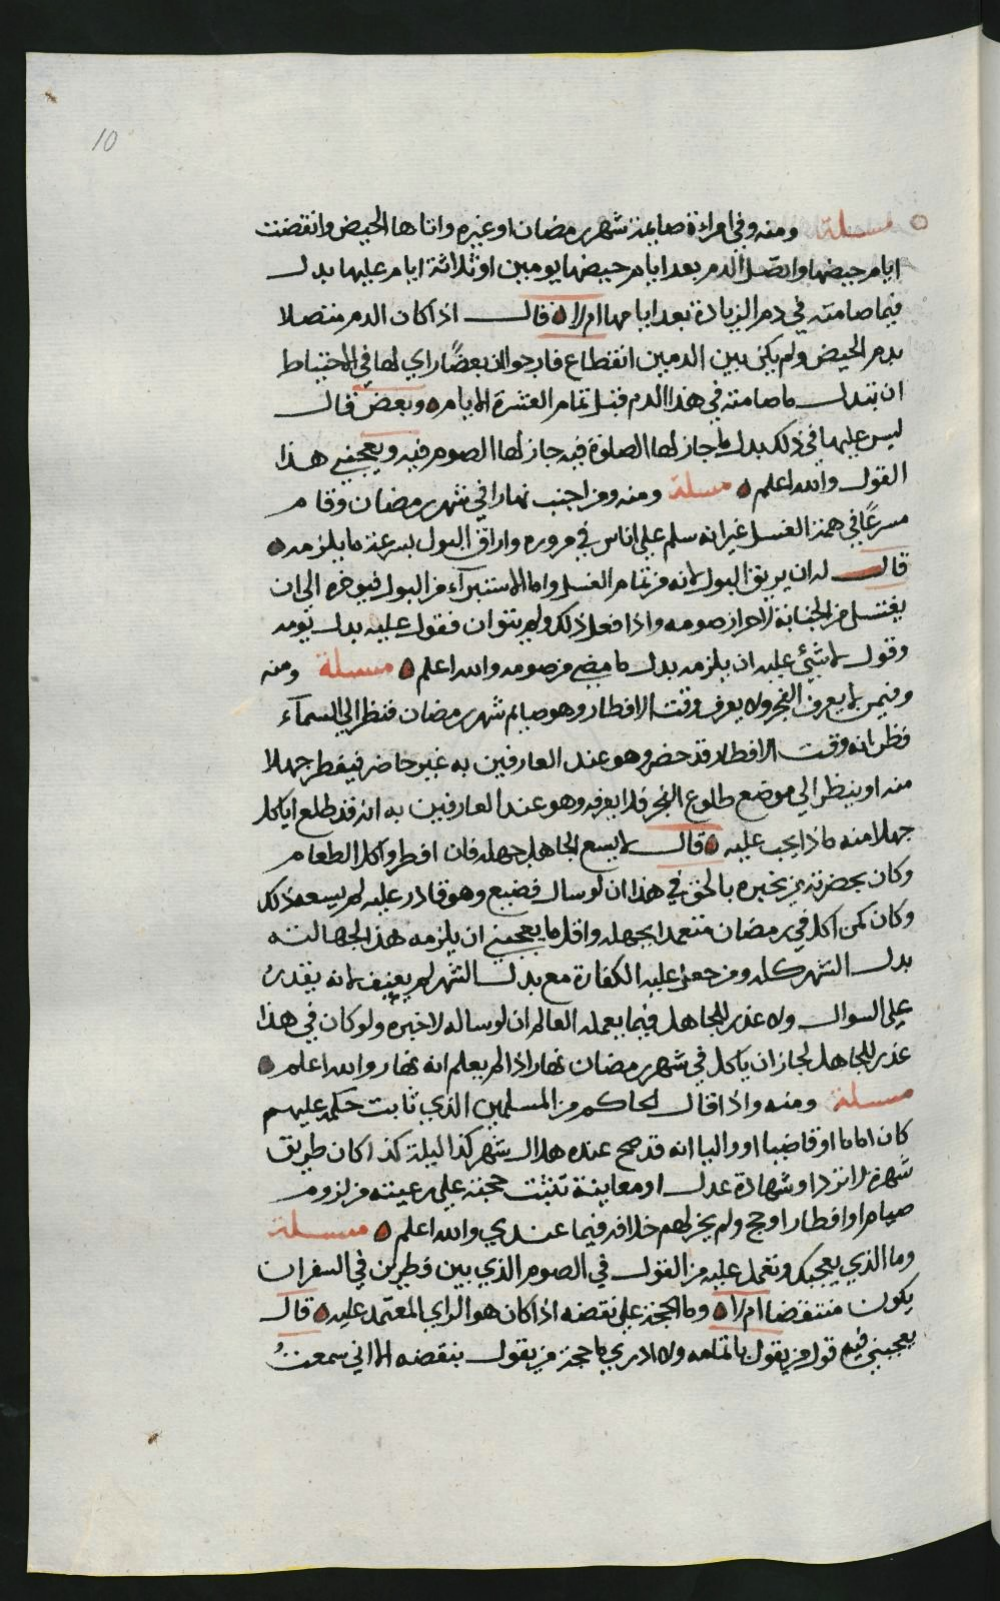 10
مسئلة ومنه وفي امراءة صايمة شهر رمضان او غيره واتاها الحيض وانقضت
ايام حيضها واتصل الدم بعد ايام حيضها يومين او ثلاثة ايام عليها بدل
فيما صامته في دم الزيادة بعد ايامها ام لا قال اذا كان الدم متصلا
بدم الحيض ولم يكن بين الدمين انقطاع فارجوا ان بعضًا راي لها في الاحتياط
ان تبدل ما صامته في هذا الدم قبل تمام العشرة الايام وبعض قال
ليس عليها في ذلك بدل ما جاز لها الصلوة فيه جاز لها الصوم فيه ويعجبني هذا
القول والله اعلم مسئلة ومنه ومن اجنب نهارا في شهر رمضان وقام
مسرعًا في همة الغسل غير انه سلم على اناس في مروره واراق البول بسرعة ما يلزمه
قال له ان يريق البول لانه من تمام الغسل واما الاستبراء من البول فيوخره الى ان
يغتسل من الجنابة لاحراز صومه واذا فعل ذلك ولم يتوان فقول عليه بدل يومه
وقول لا شيئ عليه ان يلزمه بدل ما مضى من صومه والله اعلم مسئلة ومنه
وفيمن لا يعرف الفجر ولا يعرف وقت الافطار وهو صايم شهر رمضان فنظر الى السماء
فظن انه وقت الافطار قد حضر وهو عند العارفين به غير حاضر فيفطر جهلا
منه او ينظر الى موضع طلوع الفجر فلا يعرفه وهو عند العارفين به انه قد طلع اياكل
جهلا منه ماذا يجب عليه قال لا يسع الجاهل جهله فان افطر واكل الطعام
وكان بحضرته من يخبره بالحق في هذا ان لو سال فضيع وهو قادر عليه لم يسعه ذلك
وكان كمن اكل في رمضان متعمدا بجهله واقل ما يعجبني ان يلزمه هذا لجهالته
بدل الشهر كله ومن جعل عليه الكفارة مع بدل الشهر لم يعنف لانه يقدر
على السوال ولا عذر للجاهل فيما يعمله العالم ان لو ساله لاخبره ولو كان في هذا
عذر للجاهل لجاز ان ياكل في شهر رمضان نهارا اذا لم يعلم انه نهار والله اعلم
مسئلة ومنه واذا قال الحاكم من المسلمين الذي ثابت حكمه عليهم
كان اماما او قاضيا او واليا انه قد صح عنده هلال شهر كذا ليلة كذا كان طريق
شهرة لا ترد او شهادة عدل او معاينة تثبت حجته على رعيته من لزوم
صيام او افطار او حج ولم يجز لهم خلافه فيما عندي والله اعلم مسئلة
وما الذي يعجبك وتعمل عليه من القول في الصوم الذي بين فطرين في السفر ان
يكون منتقضا ام لا وما الحجة على نقضه اذا كان هو الراي المعتمد عليه قال
يعجبني فيه قول من يقول بالتمامه ولا ادري ما حجة من يقول بنقضه الا اني سمعت